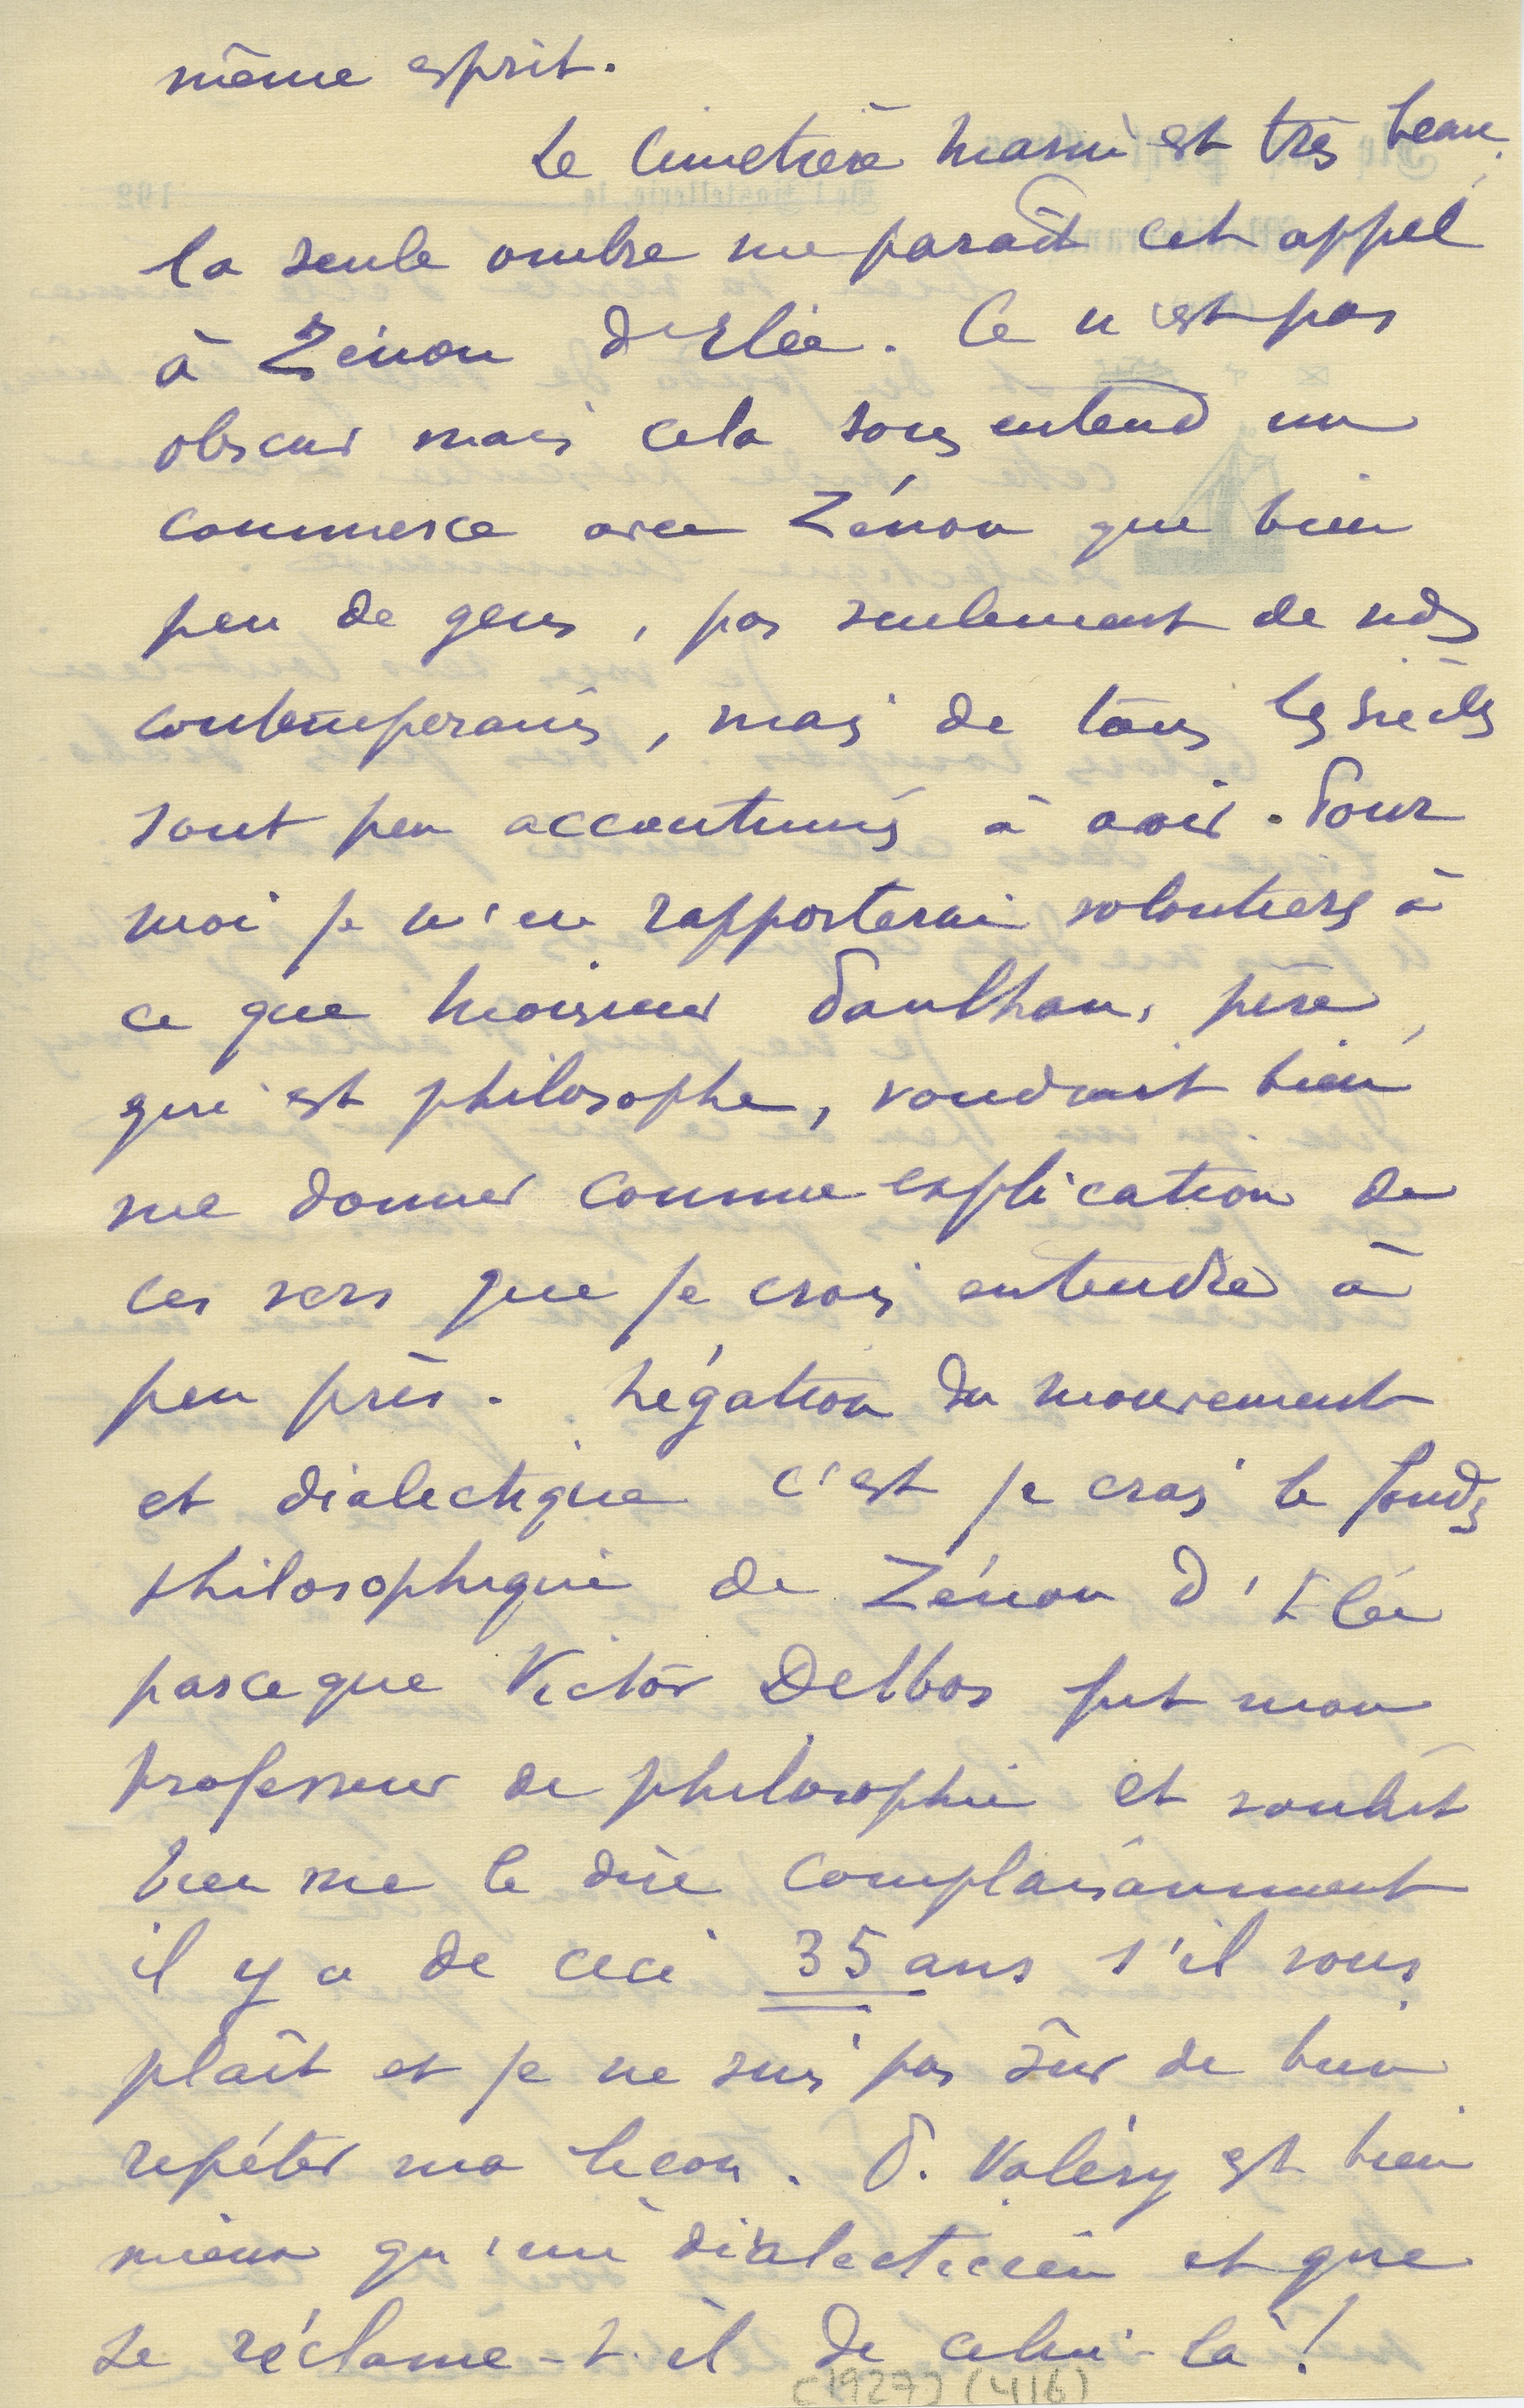 même esprit.
Le Cimetière Marin est très beau.
la seule ombre me paraît cet appel
à Zénon d'Elée. Ce n'est pas
obscur mais cela sous entend un
commerce avec Zénon que bien
peu de gens, pas seulement de nos
contemporains, mais de tous les siècles
sont peu accoutumés à avoir. Pour
moi je m'en rapporterai volontiers à
ce que Monsieur Paulhan, père,
qui est philosophe, voudrait bien
me donner comme explication de
ces vers que je crois entendre à
peu près. Négation du mouvement
et dialectique c'est je crois le fonds
philosophique de Zénon d'Elée
parceque Victor Delbos fut mon
professeur de philosophie et voulut
bien me le dire complaisamment
il y a de ceci 35 ans s'il vous
plaît et je ne suis pas sûr de bien
repéter ma leçon. P. Valéry est bien
mieux qu'un dialecticien et que
se réclame-t-il de celui-là !
[1927] (4/6)